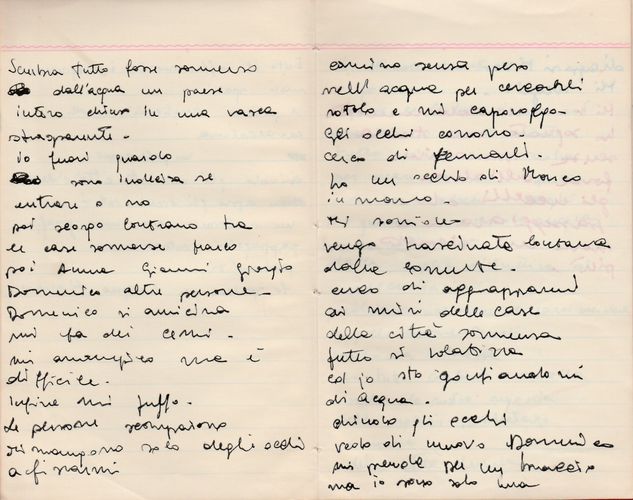 Sembra tutto fosse sommerso
dall'acqua un paese
intero chiuso in una vasca
strasparente.
io fuori guardo
sono indecisa se
entrare o no
poi scorgo lontano tra
le case sommerse
poi Anna Gianni Giorgio
Domenico altre persone.
Domenico si avvicina
mi fa dei cenni.
mi ma è
difficile.
Infine mi tuffo.
Le persone scompaiono
rimangono solo degli occhi
a fissarmi
cammino senza peso
nell'acqua per cercarli
rotolo e mi capovolgo.
Gli occhi corrono.
cerco di fermarli.
ho un occhio di Marco
in mano
Mi sorride
vengo trascinata lontana
dalla corrente.
cerco di aggrapparmi
ai muri delle case
della città sommersa
tutto si volatizza
ed io sto gonfiandomi
di acqua.
chiudo gli occhi
vedo di nuovo Domenico
mi prende per un braccio
ma io sono solo una